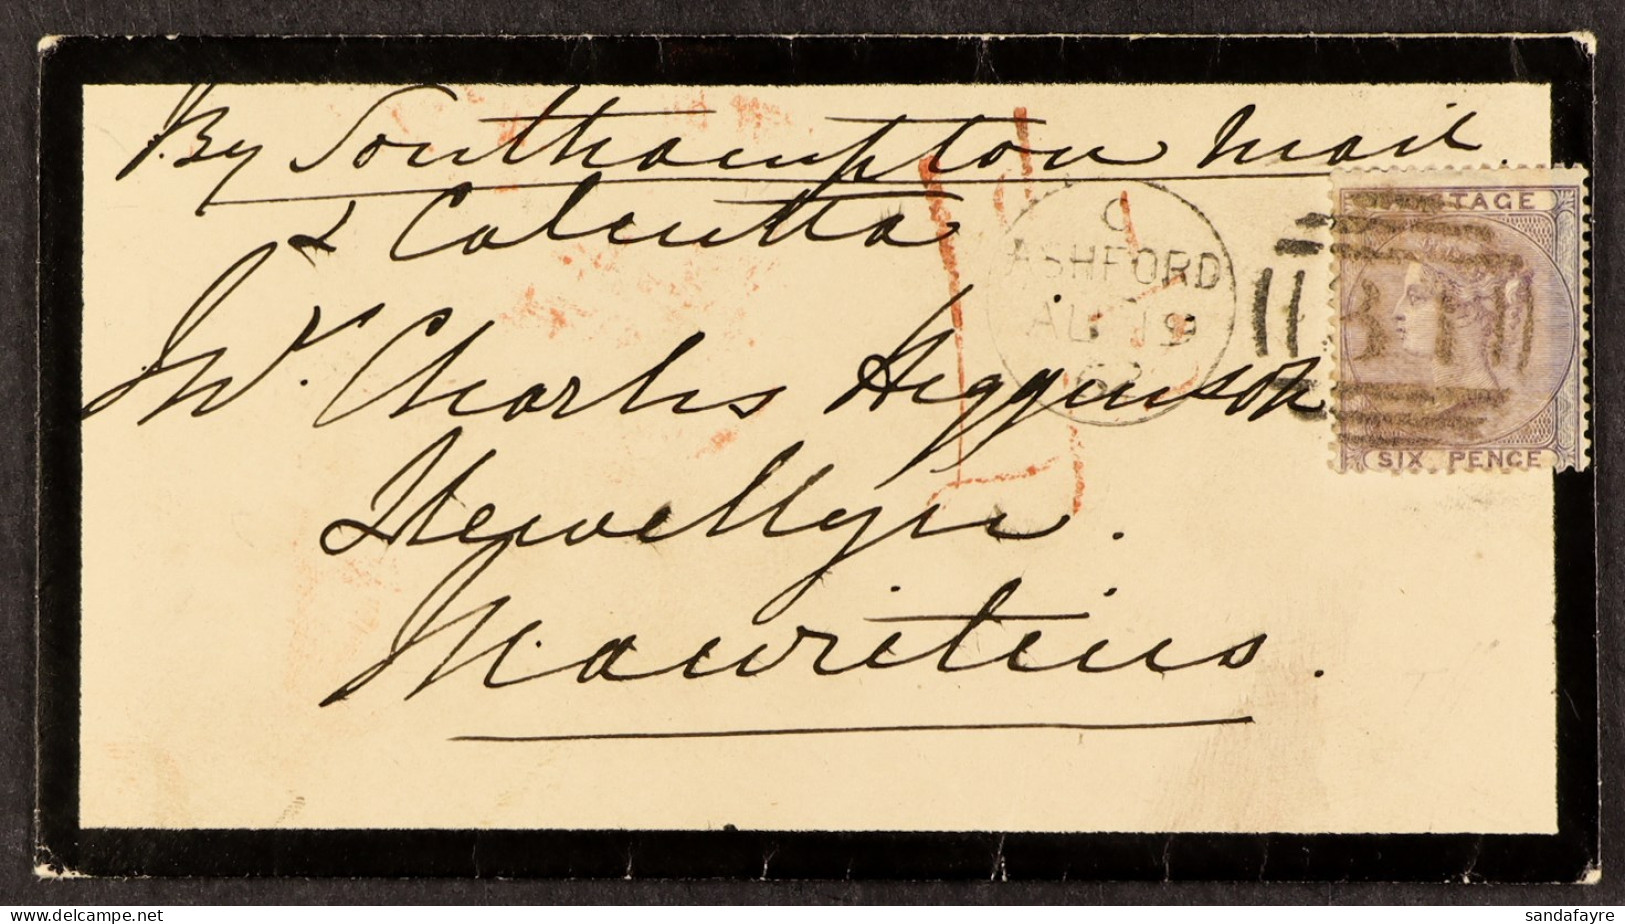 By Southampton Mail.
& Calcutta
Mr. Charles Higginson
Llewellyn.
Mauritius.
C
ASHFORD
AU 19
POSTAGE
SIX PENCE
delcampe.net
sandafayre